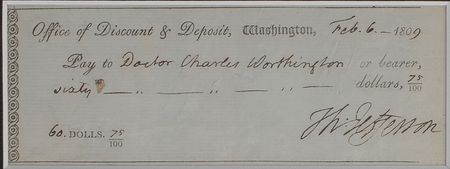 Office of Discount & Deposit, Washington, Feb. 6. — 1809
Pay to Doctor Charles Worthington or bearer,
sixty — „ — „ — „ — dollars, 75/100
60. DOLLS. 75/100
Th: Jefferson